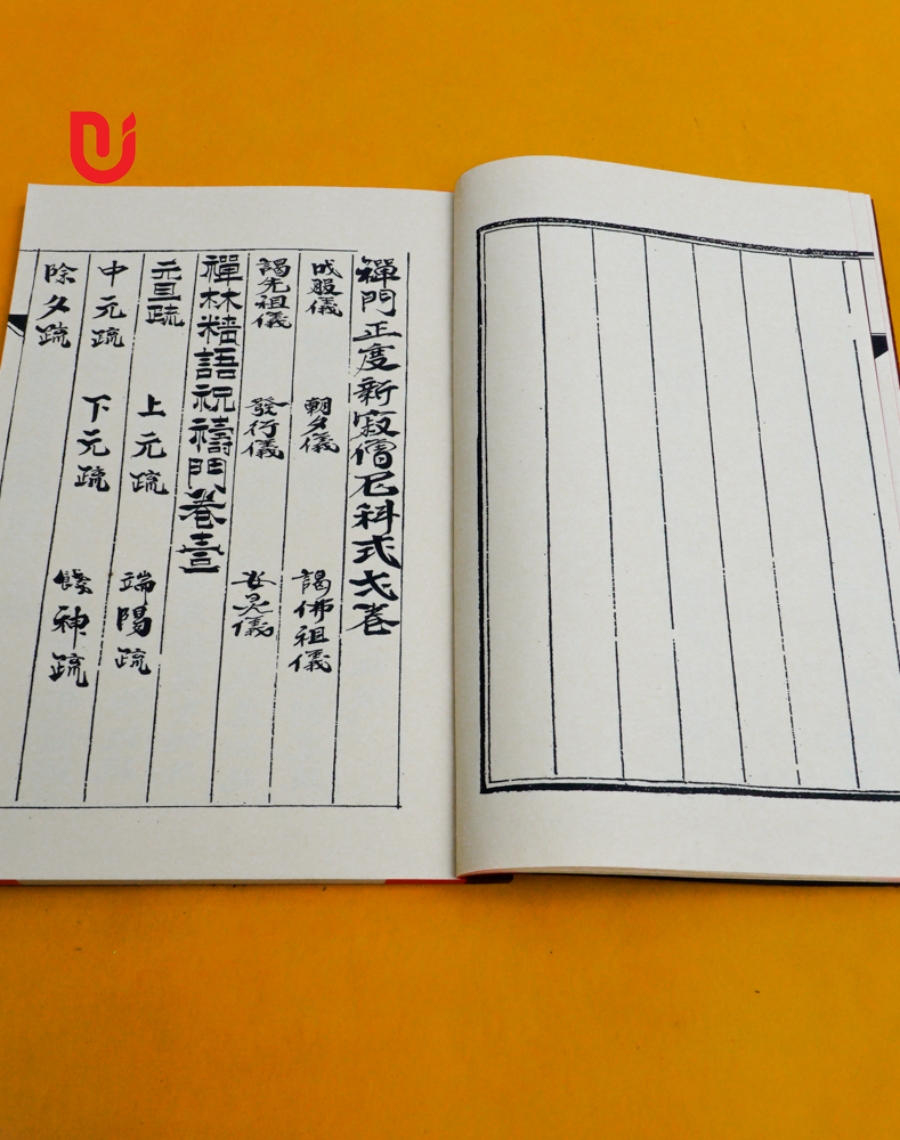 禪門正度新寂僧尼科式弍卷
成服儀 朝夕儀 謁佛祖儀
謁先祖儀 發行儀 安灵儀
禪林精語祝禱門卷壹
元旦疏 上元疏 端陽疏
中元疏 下元疏 神疏
除夕疏